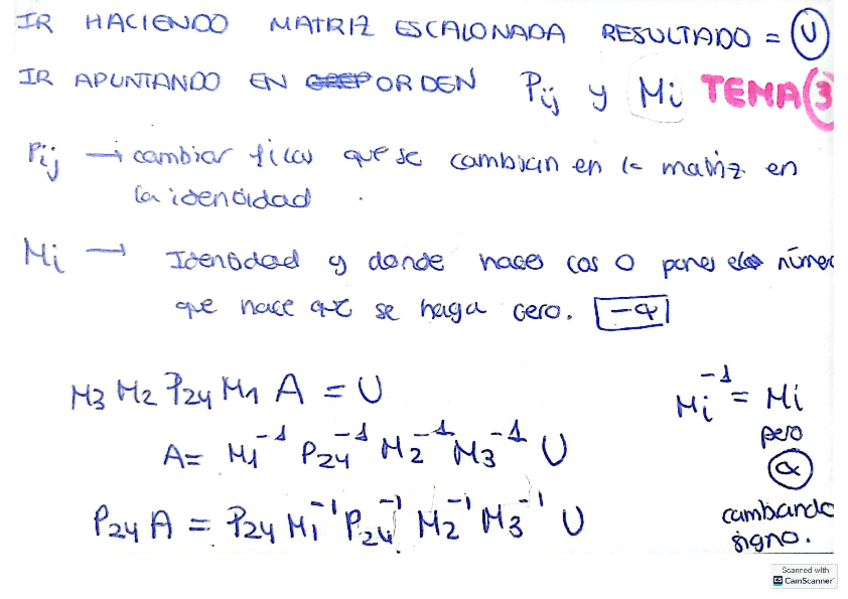 IR HACIENDO MATRIZ ESCALONADA RESULTADO = U
IR APUNTANDO EN ORDEN Pij y Mi TEMA 3
Pij → cambiar filas que se cambian en la matriz en
la identidad
Mi → Identidad y donde haces los 0 pones el número
que hace que se haga cero. -α
M3 M2 P24 M1 A = U
A = M1⁻¹ P24⁻¹ M2⁻¹ M3⁻¹ U
P24 A = P24 M1⁻¹ P24⁻¹ M2⁻¹ M3⁻¹ U
Mi⁻¹ = Mi
pero
α
cambiando
signo.
Scanned with
CS CamScanner